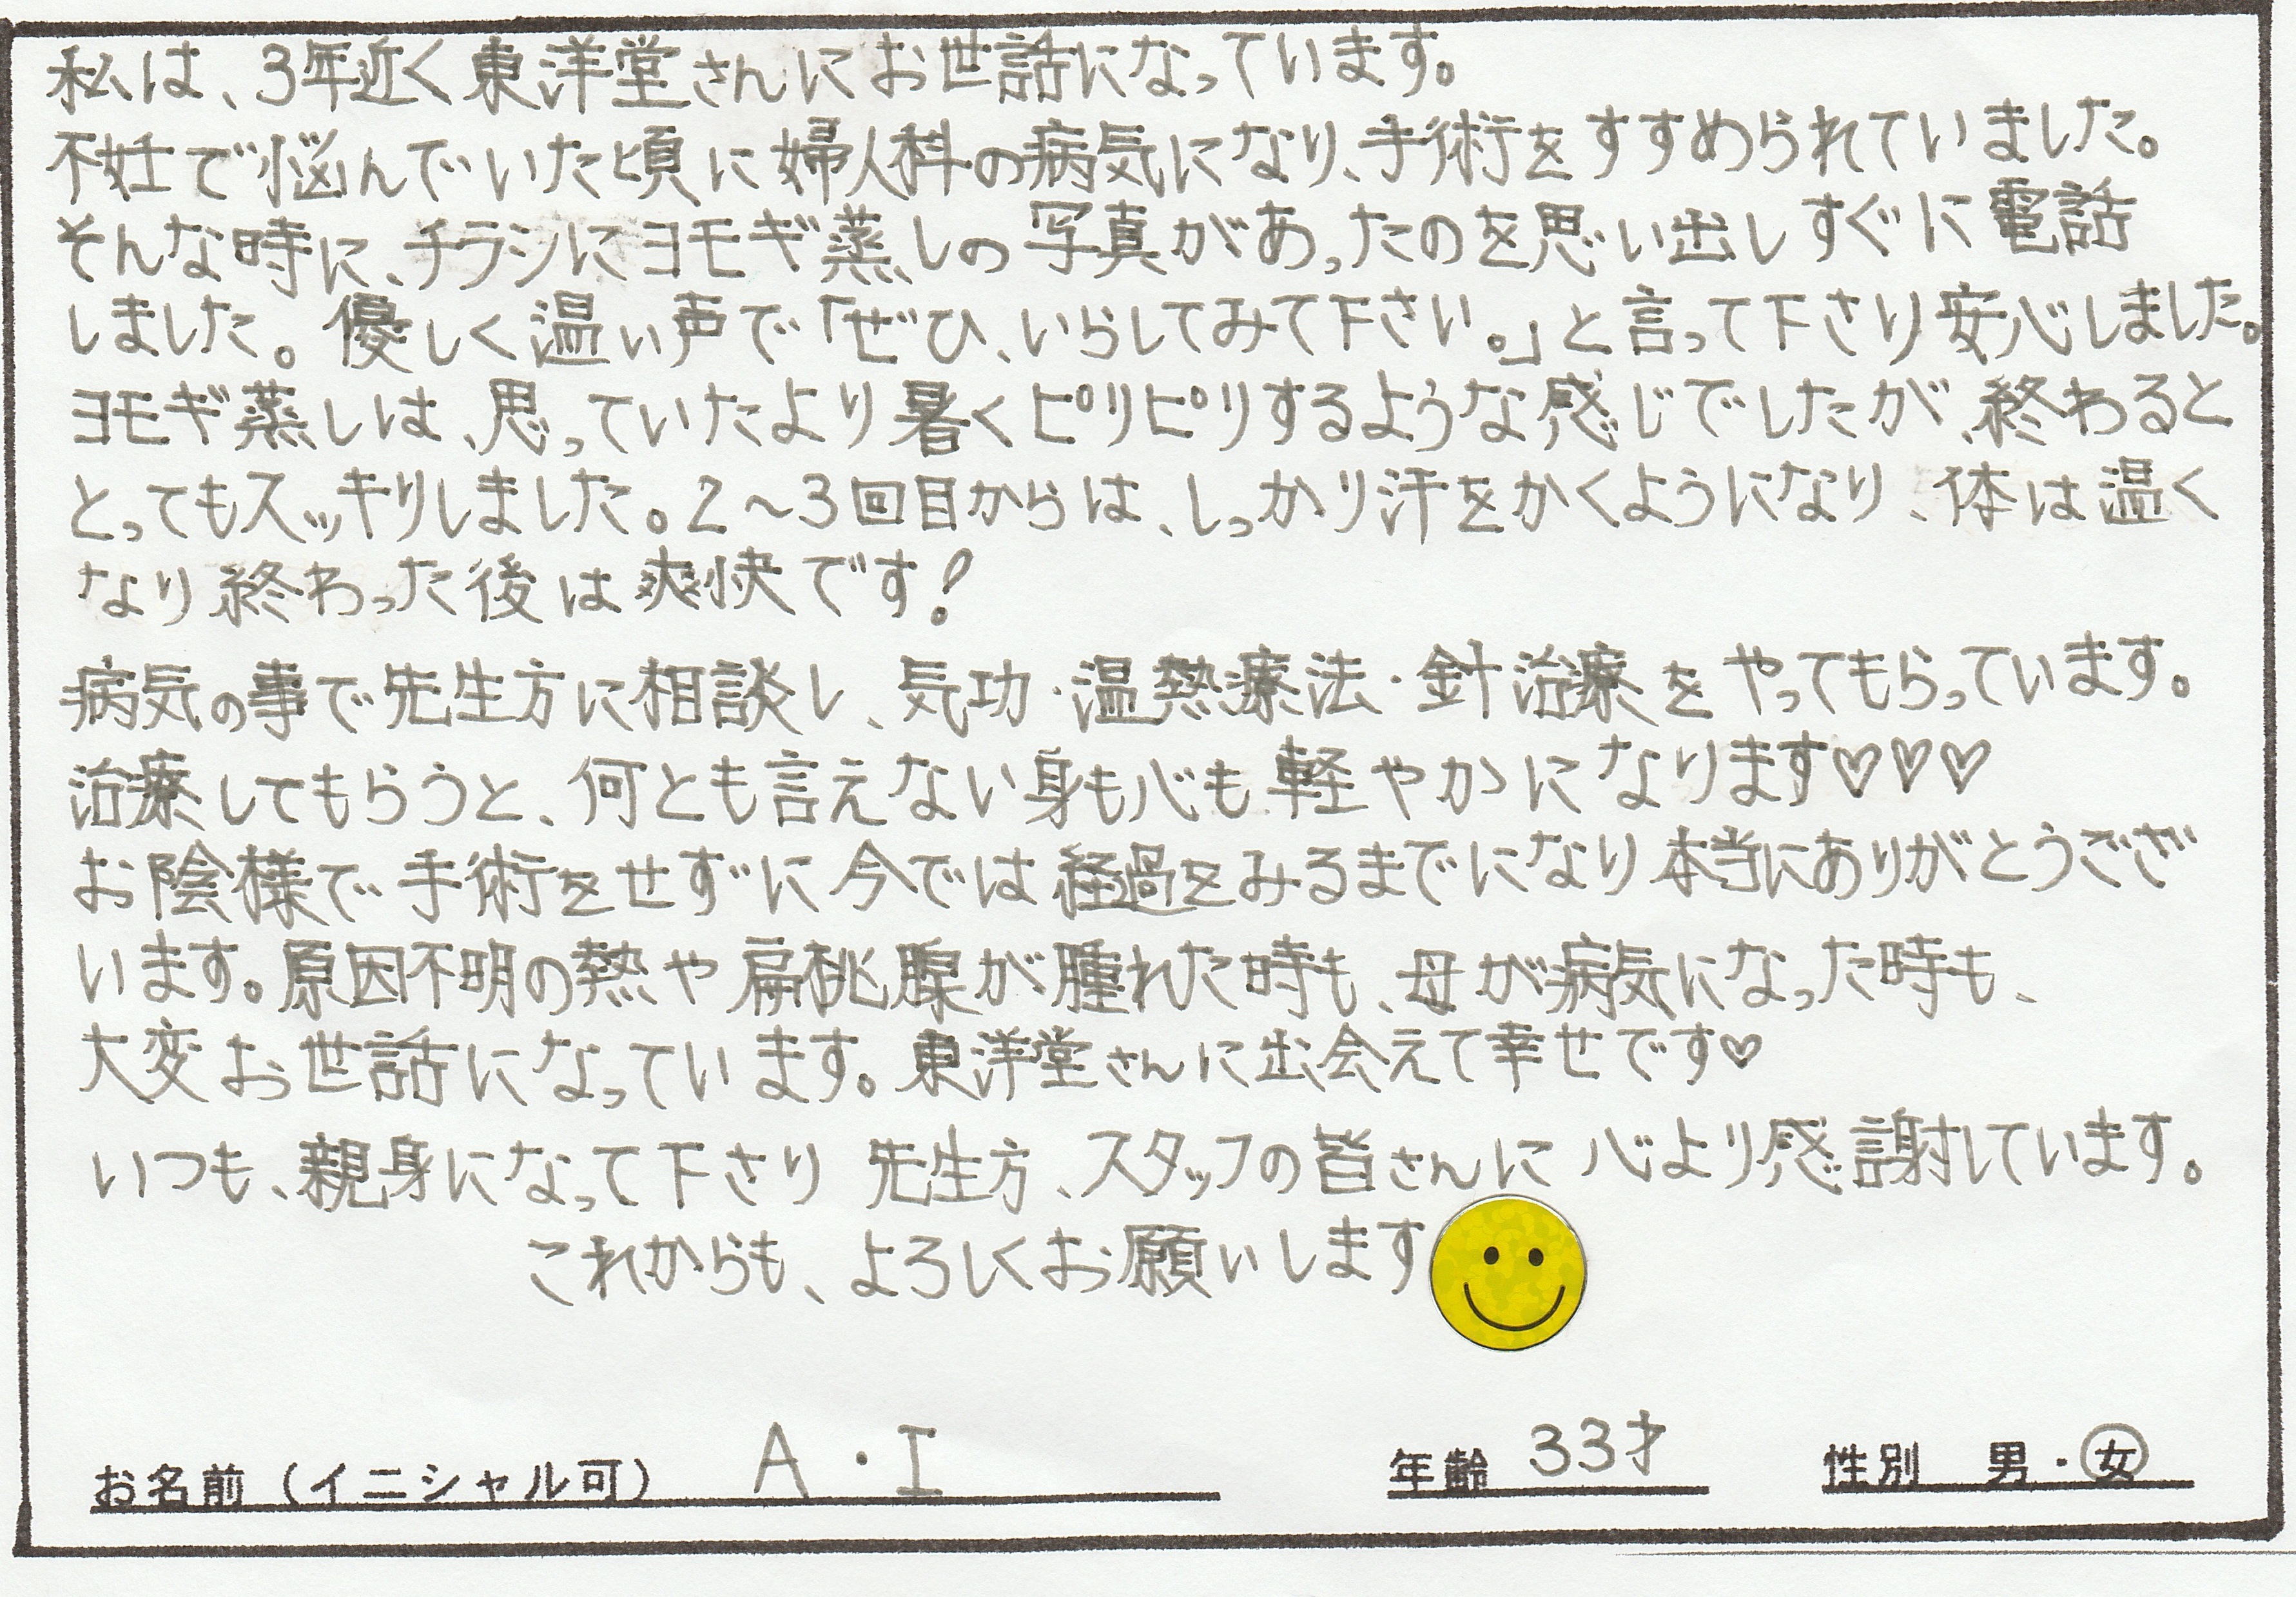 私は、3年近く東洋堂さんにお世話になっています。
不妊で悩んでいた頃に婦人科の病気になり、手術をすすめられていました。
そんな時に、チラシにヨモギ蒸しの写真があったのを思い出しすぐに電話
しました。優しく温い声で「ぜひ、いらしてみて下さい。」と言って下さり安心しました。
ヨモギ蒸しは、思っていたより暑くピリピリするような感じでしたが、終わると
とってもスッキリしました。2〜3回目からは、しっかり汗をかくようになり、体は温く
なり終わった後は爽快です!
病気の事で先生方に相談し、気功・温熱療法・針治療をやってもらっています。
治療してもらうと、何とも言えない身も心も軽やかになります♡♡♡
お陰様で手術をせずに今では経過をみるまでになり本当にありがとうござ
います。原因不明の熱や扁桃腺が腫れた時も、母が病気になった時も、
大変お世話になっています。東洋堂さんに出会えて幸せです♡
いつも、親身になって下さり 先生方、スタッフの皆さんに心より感謝しています。
これからも、よろしくお願いします
お名前（イニシャル可） A・I 年齢 33才 性別 男・女